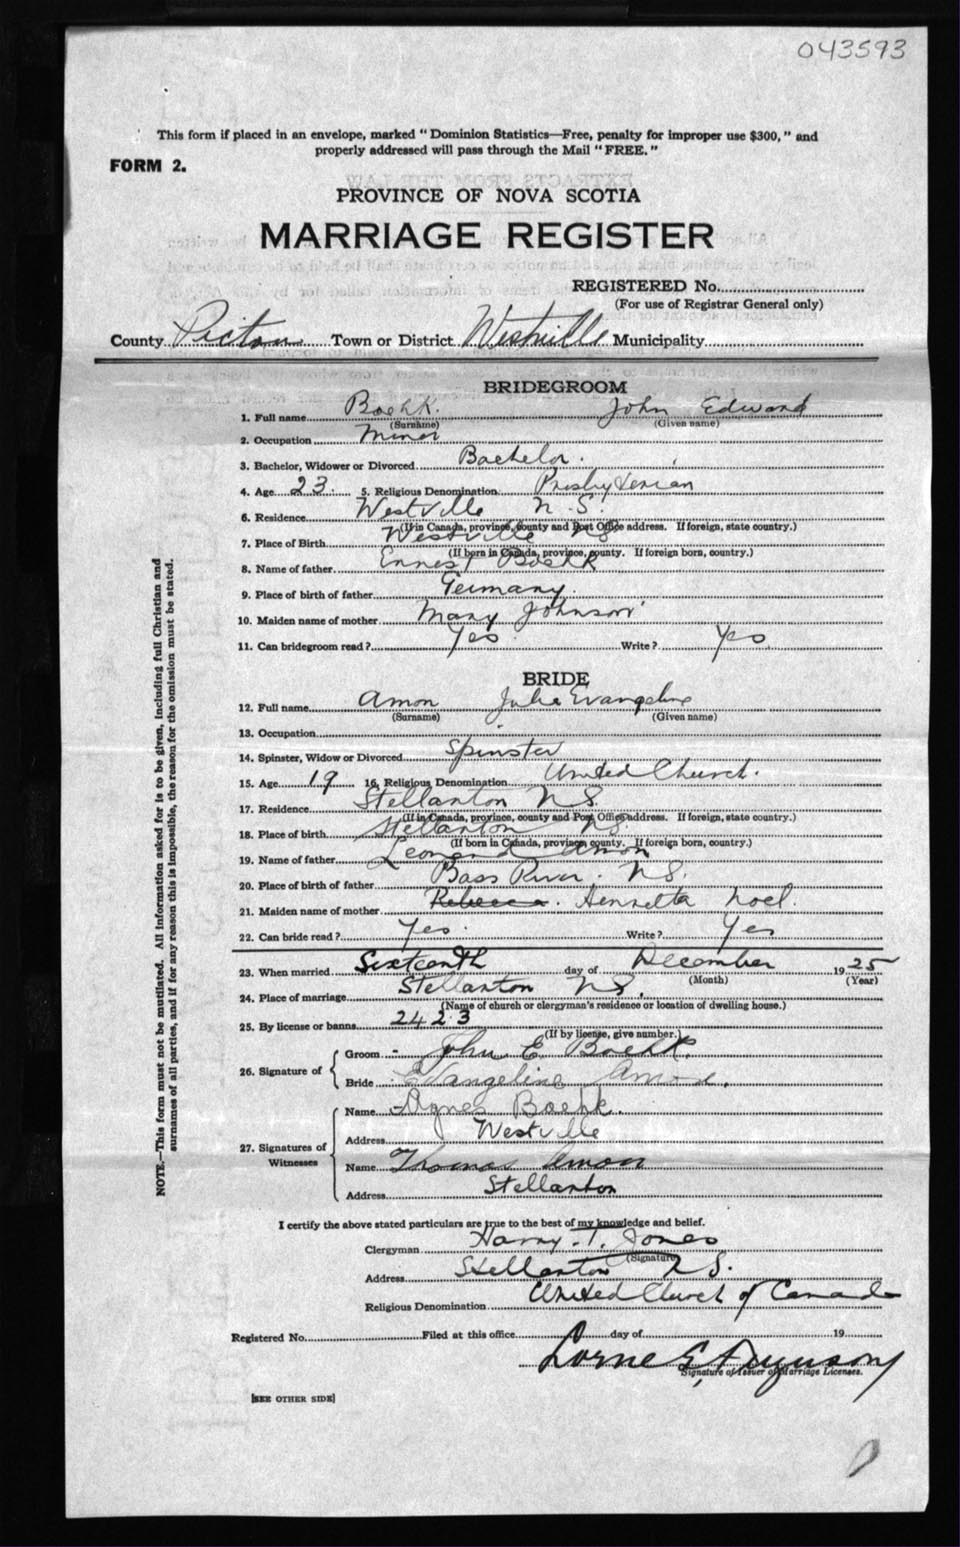 043593
This form if placed in an envelope, marked "Dominion Statistics—Free, penalty for improper use $300," and
properly addressed will pass through the Mail "FREE."
FORM 2.
PROVINCE OF NOVA SCOTIA
MARRIAGE REGISTER
REGISTERED No.
(For use of Registrar General only)
County Pictou Town or District Westville Municipality
BRIDEGROOM
1. Full name Boehk. John Edward
(Surname) (Given name)
2. Occupation Miner
3. Bachelor, Widower or Divorced Bachelor.
4. Age 23. 5. Religious Denomination Presbyterian
6. Residence Westville N.S.
(If in Canada, province, county and Post Office address. If foreign, state country.)
7. Place of Birth Westville NS
(If born in Canada, province, county. If foreign born, country.)
8. Name of father Ennest Boehk
9. Place of birth of father Germany.
10. Maiden name of mother Mary Johnson
11. Can bridegroom read? Yes Write? Yes
BRIDE
12. Full name Amon Julie Evangeline
(Surname) (Given name)
13. Occupation
14. Spinster, Widow or Divorced Spinster
15. Age 19 16. Religious Denomination United Church.
17. Residence Stellarton NS.
(If in Canada, province, county and Post Office address. If foreign, state country.)
18. Place of birth Stellarton NS.
(If born in Canada, province, county. If foreign born, country.)
19. Name of father Leonard Amon
20. Place of birth of father Bass River. NS.
21. Maiden name of mother Rebecca. Henrietta Noel.
22. Can bride read? Yes. Write? Yes
23. When married Sixteenth day of December 1925
(Month) (Year)
24. Place of marriage Stellarton NS.
(Name of church or clergyman's residence or location of dwelling house.)
25. By license or banns 2423
(If by license, give number.)
26. Signature of Groom John E Boehk.
Bride Evangeline Amon.
27. Signatures of Witnesses Name Agnes Boehk.
Address Westville
Name Thomas Amon
Address Stellarton
I certify the above stated particulars are true to the best of my knowledge and belief.
Clergyman Harry. T. Jones
(Signature)
Address Stellarton NS.
Religious Denomination United Church of Canada
Registered No. Filed at this office day of 19
Lorne E. Ferguson
Signature of Issuer of Marriage Licenses.
[SEE OTHER SIDE]
NOTE.—This form must not be mutilated. All information asked for is to be given, including full Christian and
surnames of all parties, and if for any reason this is impossible, the reason for the omission must be stated.